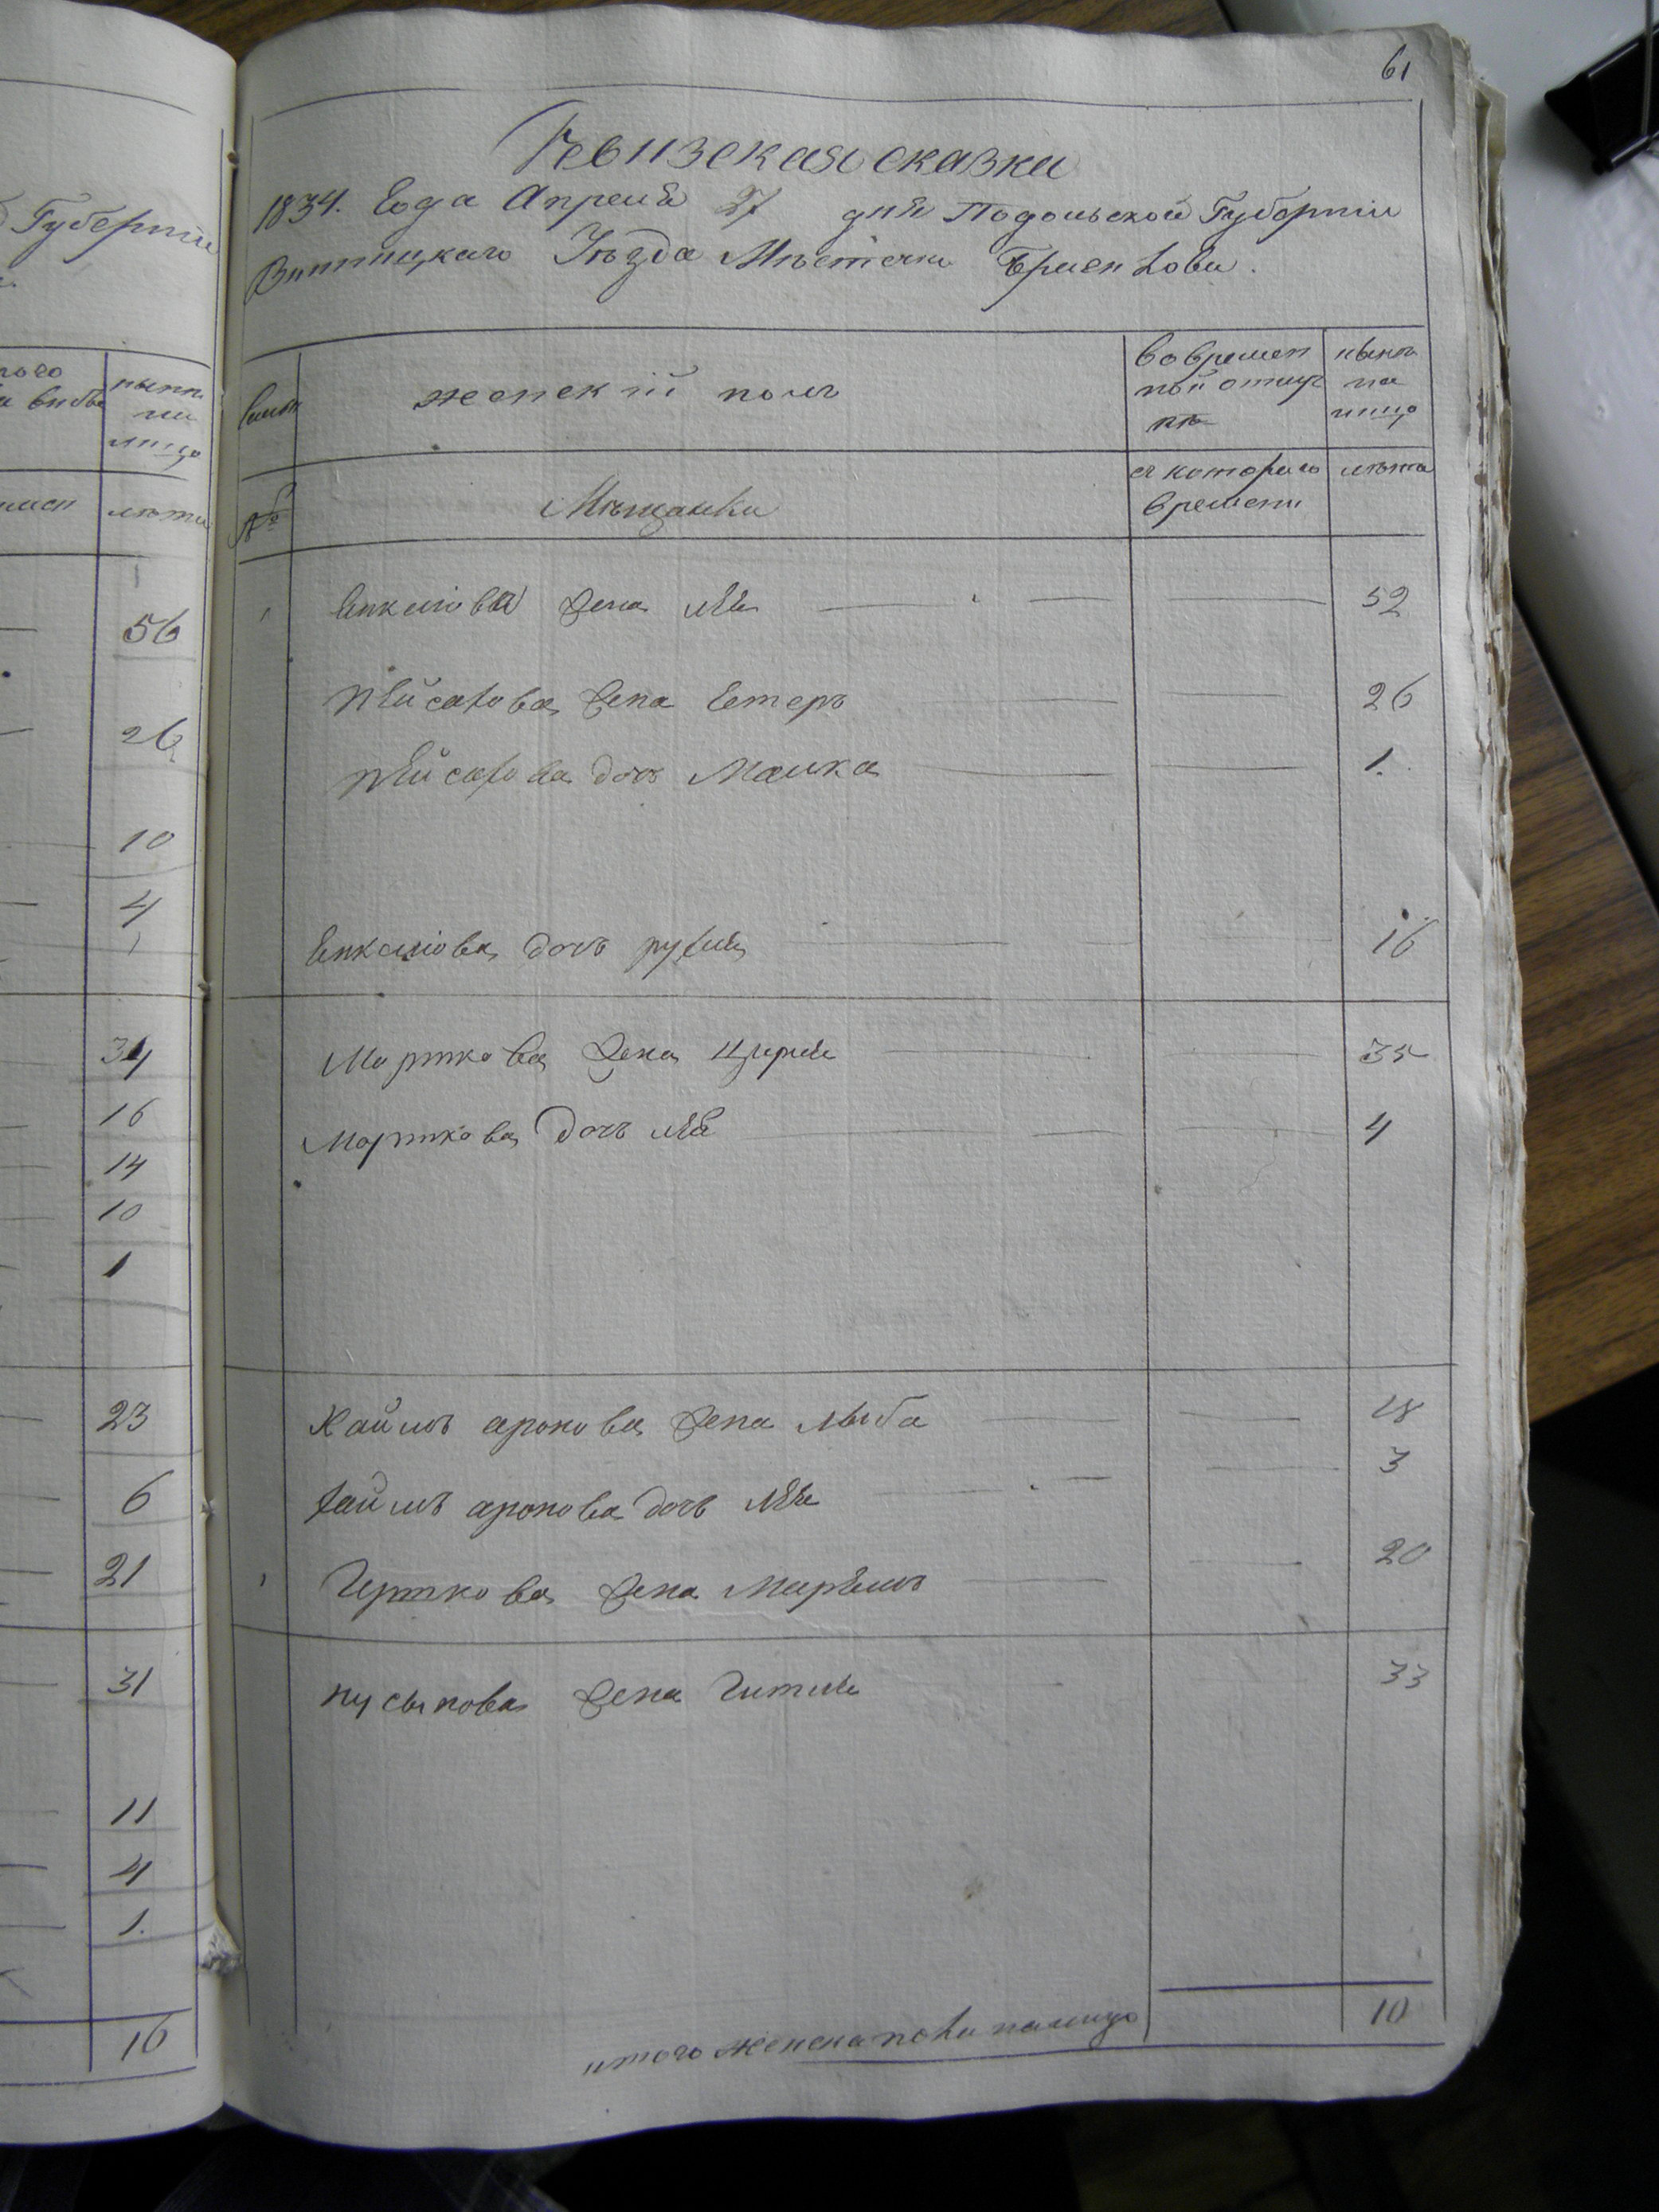 61
Ревизская сказка
1834. Года Апреля 27 дня Подольской Губернии
Винницкаго Уѣзда Мѣстечка Браилова.
Семьи
женский полъ
во времен
ной отлуч
кѣ
нынѣ
на
лицо
№
Мѣщанки
съ котораго
времени
лѣта
1
жена Лея
52
Пейсахова жена Естеръ
26
Пейсахова дочь Малка
1.
дочь Рухля
16
Морткова жена Цирля
35
Морткова дочь Лея
4
Хаймъ Аронова жена Лыба
18
Хаймъ Аронова дочь Лея
3
Герткова жена Марьемъ
20
Нусынова жена Гитля
33
итого женска пола налицо
10
Губернии
нынѣ
на
лицо
лѣта
56
26
10
4
34
16
14
10
1
23
6
21
31
11
4
1.
16